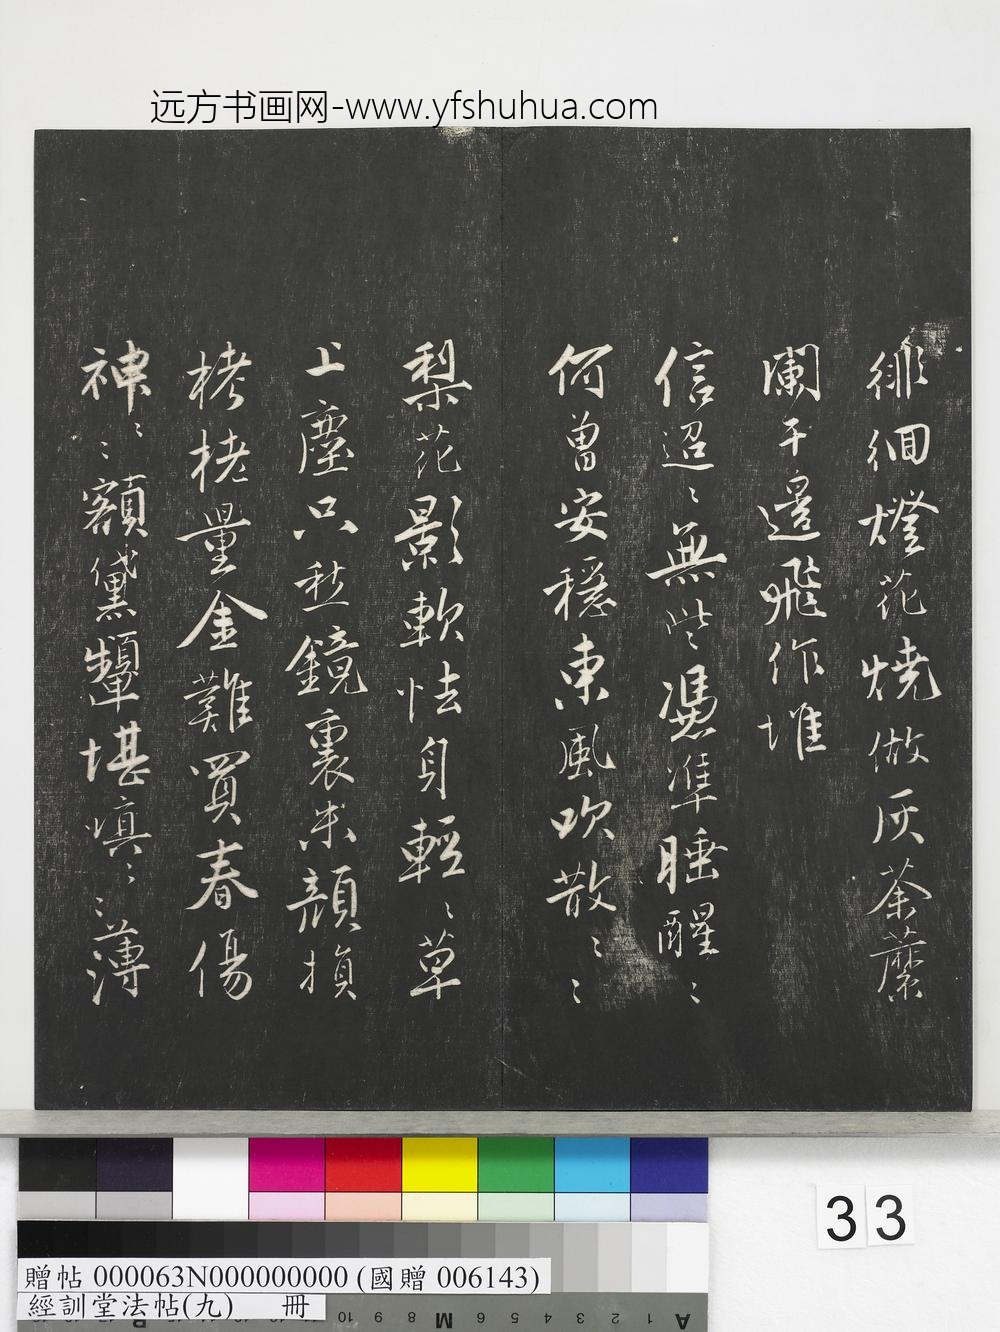 远方书画网-www.yfshuhua.com
徘徊燈花燒做灰荼蘼
闌干邊飛作堆
信迢〻無些憑準睡醒〻
何曾安穩東風吹散〻〻
梨花影軟怯身輕〻草
上塵只愁鏡裏朱顏損
栲栳量金難買春傷
神〻〻額黛顰堪嗔〻〻薄
33
贈帖 000063N000000000 (國贈 006143)
經訓堂法帖(九) 冊